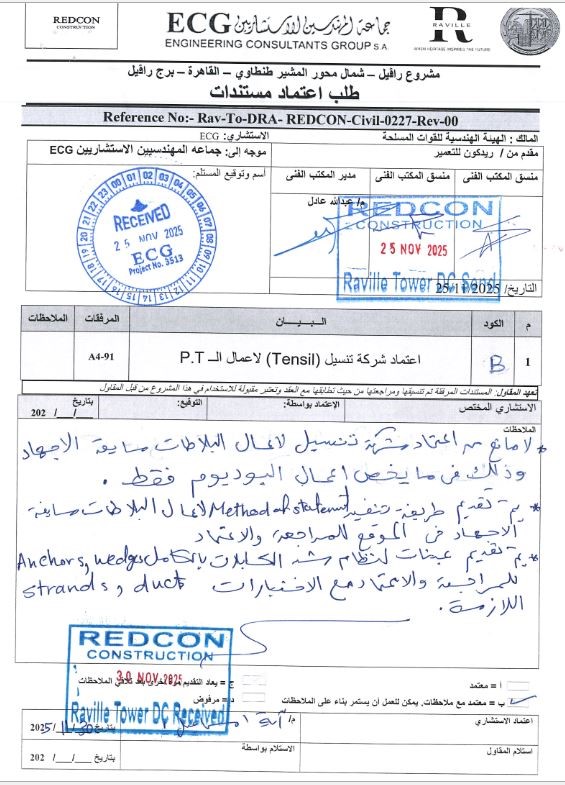 REDCON
CONSTRUCTION
ECG جماعة المهندسين الاستشاريين
ENGINEERING CONSULTANTS GROUP S.A.
R
RAVILLE
WHEN HERITAGE INSPIRES THE FUTURE
مشروع رافيل – شمال محور المشير طنطاوي – القاهرة – برج رافيل
طلب اعتماد مستندات
Reference No:- Rav-To-DRA- REDCON-Civil-0227-Rev-00
المالك : الهيئة الهندسية للقوات المسلحة
الاستشاري: ECG
مقدم من / ريدكون للتعمير
موجه إلى: جماعه المهندسيين الاستشاريين ECG
منسق المكتب الفنى
منسق المكتب الفنى
مدير المكتب الفنى
اسم وتوقيع المستلم:
م/ عبدالله عادل
RECEIVED
25 NOV 2025
ECG
Project No. 3513
REDCON
CONSTRUCTION
25 NOV 2025
Raville Tower DC Send
التاريخ/ 25/11/2025
م
الكود
البـيـــان
المرفقات
الملاحظات
1
B
اعتماد شركة تنسيل (Tensil) لاعمال الـ P.T
A4-91
تعهد المقاول: المستندات المرفقة تم تنسيقها ومراجعتها من حيث تطابقها مع العقد وتعتبر مقبولة للاستخدام في هذا المشروع من قبل المقاول
الاستشاري المختص
الإعتماد بواسطة:
التوقيع:
بتاريخ
202 /___/___
الملاحظات
* لا مانع من اعتماد شركة تنسيل لاعمال البلاطات سابقة الاجهاد
وذلك فى ما يخص اعمال البوديوم فقط .
* يتم تقديم طريقة تنفيذ Method of statement لاعمال البلاطات سابقة
الاجهاد فى الموقع للمراجعة والاعتماد
* يتم تقديم عينات لنظام شد الكابلات بالكامل Anchors, wedges
strands, ducts للمراجعة والاعتماد مع الاختبارات
اللازمة .
REDCON
CONSTRUCTION
30 NOV 2025
Raville Tower DC Received
أ = معتمد
ج = يعاد التقديم مرة اخرى بعد تلافي الملاحظات
ب = معتمد مع ملاحظات, يمكن للعمل أن يستمر بناء على الملاحظات
د = مرفوض
اعتماد الاستشاري
م/
بتاريخ 30/11/2025
استلام المقاول
الاستلام بواسطة
بتاريخ ___/___/ 202